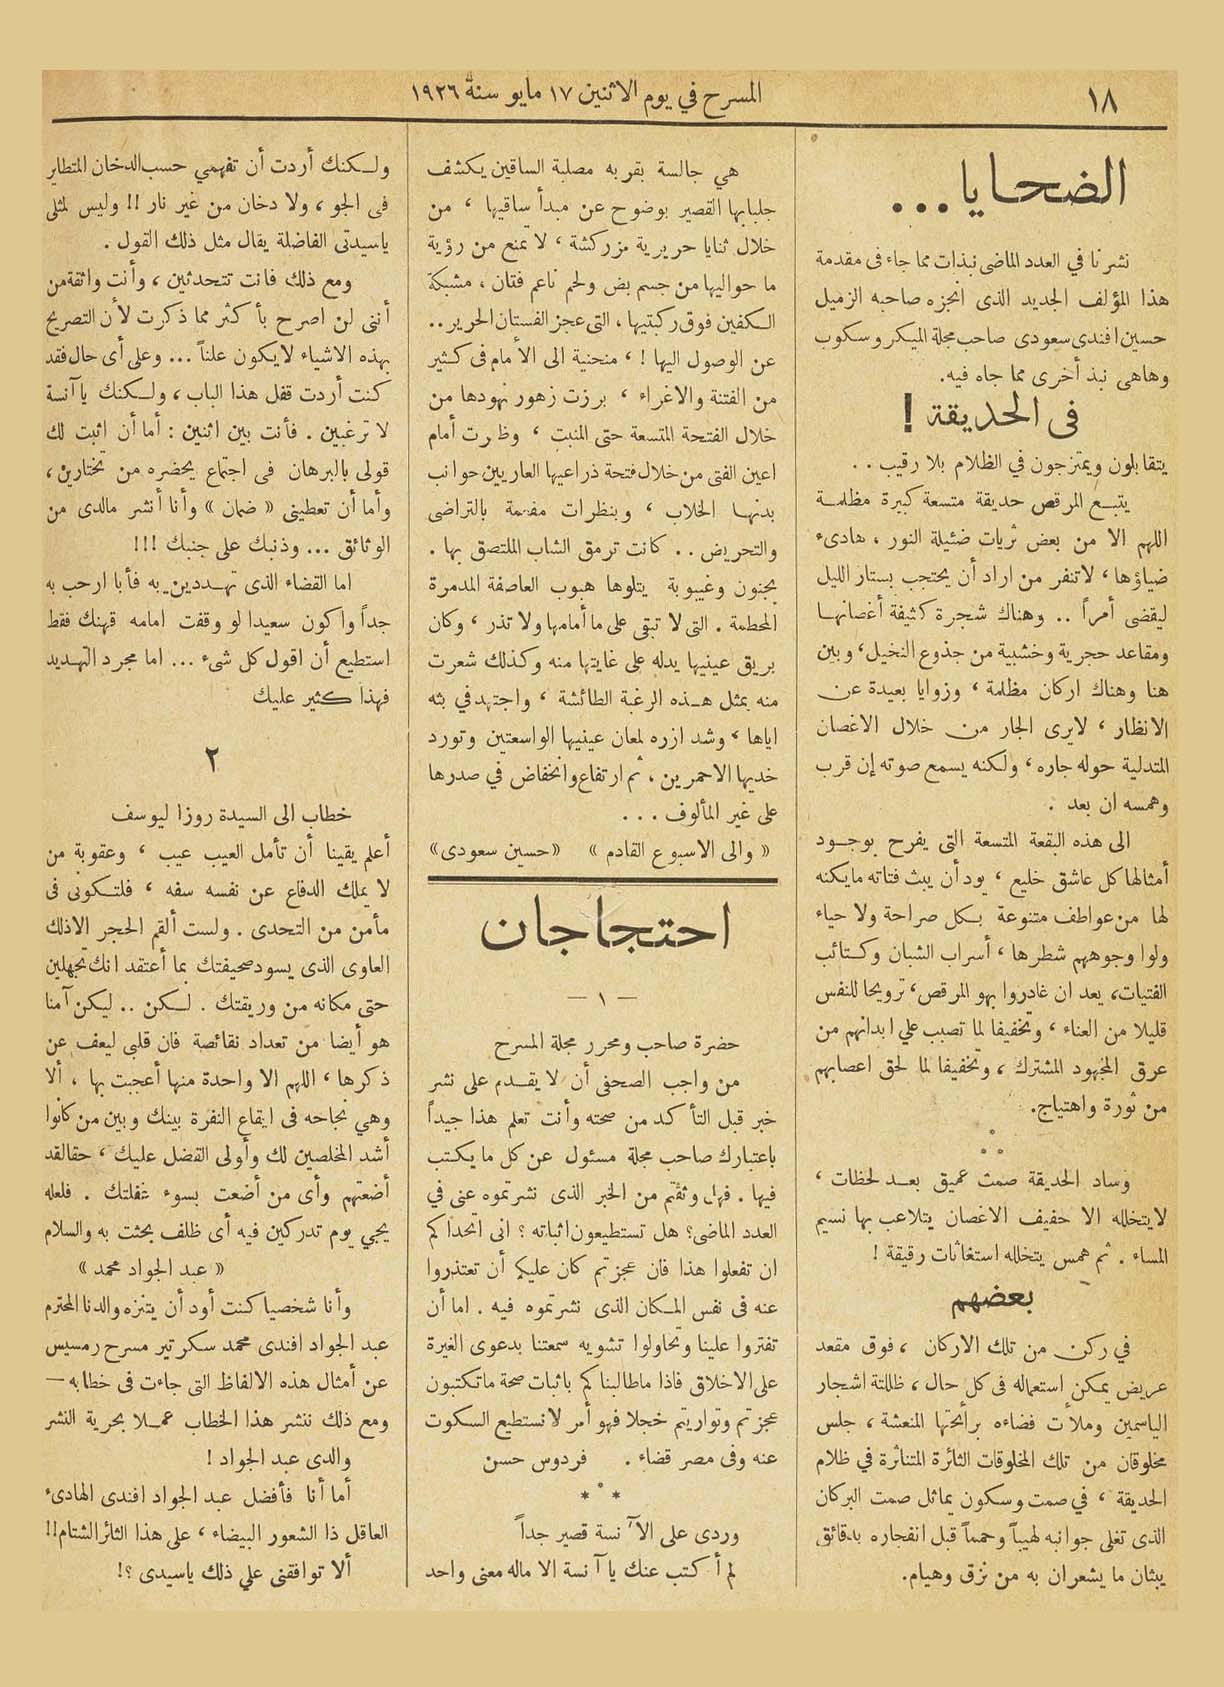 ١٨
المسرح في يوم الاثنين ١٧ مايو سنة ١٩٢٦
الضحايا ...
نشرنا في العدد الماضى نبذات مما جاء فى مقدمة
هذا المؤلف الجديد الذى انجزه صاحبه الزميل
حسين افندى سعودى صاحب مجلة الميكروسكوب
وهاهى نبذ أخرى مما جاه فيه.
فى الحديقة !
يتقابلون ويمتزجون في الظلام بلا رقيب . .
يتبع المرقص حديقة متسعة كبيرة مظلمة
اللهم الا من بعض ثريات ضئيلة النور ، هادىء
ضياؤها ، لاتنفر من اراد أن يحتجب بستار الليل
ليقضى أمراً .. وهناك شجرة كثيفة أغصانها
ومقاعد حجرية وخشبية من جذوع النخيل ، وبين
هنا وهناك اركان مظلمة ، وزوايا بعيدة عن
الانظار ، لايرى الجار من خلال الاغصان
المتدلية حوله جاره ، ولكنه يسمع صوته إن قرب
وهمسه ان بعد .
الى هذه البقعة المتسعة التى يفرح بوجود
أمثالها كل عاشق خليع ، يود أن يبث فتاته مايكنه
لها من عواطف متنوعة بكل صراحة ولا حياء
ولوا وجوههم شطرها ، أسراب الشبان وكتائب
الفتيات، يعد ان غادروا بهو المرقص، ترويحا للنفس
قليلا من العناء ، وتخفيفا لما تصبب علي ابدانهم من
عرق المجهود المشترك ، وتخفيفا لما لحق اعصابهم
من ثورة واهتياج.
وساد الحديقة صمت عميق بعد لحظات ،
لايتخلله الا حفيف الاغصان يتلاعب بها نسيم
المساء . ثم همس يتخلله استغاثات رقيقة !
بعضهم
في ركن من تلك الاركان ، فوق مقعد
عريض يمكن استعماله فى كل حال ، ظللتة اشجار
الياسمين وملأت فضاءه برأحتها المنعشة ، جلس
مخلوقان من تلك المخلوقات الثائرة المتناثرة في ظلام
الحديقة ، في صمت وسكون يماثل صمت البركان
الذى تغلى جوانبه لهيباً وحمماً قبل انفجاره بدقائق
يبثان ما يشعران به من نزق وهيام.
هي جالسة بقربه مصلبة الساقين يكشف
جلبابها القصير بوضوح عن مبدأ ساقيها ، من
خلال ثنايا حريرية مزركشة ، لا تمنع من رؤية
ما حواليها من جسم بض ولحم ناعم فتان ، مشبكة
الكفين فوق ركبتيها ، التى عجز الفستان الحرير ..
عن الوصول اليها ! ، منحنية الى الأمام فى كثير
من الفتنة والاغراء ، برزت زهور نهودها من
خلال الفتحة المتسعة حتى المنبت ، وظرت أمام
اعين الفتى من خلال فتحة ذراعيها العاريين حوانب
بدنها الخلاب ، وبنظرات مفعمة بالتراضى
والتحريض .. كانت ترمق الشاب الملتصق بها .
بجنون وغيبوبة يتلوها هبوب العاصفة المدمرة
المحطمة . التى لا تبقى على ما أمامها ولا تذر ، وكان
بريق عينيها يدله على غايتها منه وكذلك شعرت
منه بمثل هذه الرغبة الطائشة ، واجتهد في بثه
اياها ، وشد ازره لمعان عينيها الواسعتين وتورد
خديها الاحمرين ، ثم ارتفاع وانخفاض في صدرها
على غير المألوف . . .
« والى الاسبوع القادم » «حسين سعودى»
احتجاجان
— ١ —
حضرة صاحب ومحرر مجلة المسرح
من واجب الصحفى أن لا يقدم على نشر
خبر قبل التأكد من صحته وأنت تعلم هذا جيداً
باعتبارك صاحب مجلة مسئول عن كل ما يكتب
فيها . فهل وثقتم من الخبر الذى نشرتموه عنى في
العدد الماضى؟ هل تستطيعون اثباته ؟ انى اتحداكم
ان تفعلوا هذا فان عجزتم كان عليكم أن تعتذروا
عنه فى نفس المكان الذى نشرتموه فيه . اما أن
تفتروا علينا وتحاولوا تشويه سمعتنا بدعوى الغيرة
على الاخلاق فاذا ماطالبناكم باثبات صحة ماتكتبون
عجزتم وتواريتم خجلا فهو أمر لانستطيع السكوت
عنه وفى مصر قضاء . فردوس حسن
* * *
وردى على الآنسة قصير جداً
لم أكتب عنك يا آنسة الا ماله معنى واحد
ولكنك أردت أن تفهمي حسب الدخان المتطاير
فى الجو ، ولا دخان من غير نار !! وليس لمثلى
ياسيدتى الفاضلة يقال مثل ذلك القول .
ومع ذلك فانت تتحدثين ، وأنت واثقة من
أننى لن اصرح بأكثر مما ذكرت لأن التصريح
بهذه الاشياء لايكون علناً ... وعلى أى حال فقد
كنت أردت قفل هذا الباب ، ولكنك يا آنسة
لا ترغبين . فأنت بين اثنين : أما أن اثبت لك
قولى بالبرهان فى اجتماع يحضره من تختارين ،
وأما أن تعطينى « ضمان » وأنا أنشر مالدى من
الوثائق ... وذنبك على جنبك !!!
اما القضاء الذى تهددين به فأبا ارحب به
جداً واكون سعيدا لو وقفت امامه فهنك فقط
استطيع أن اقول كل شىء ... اما مجرد التهديد
فهذا كثير عليك
٢
خطاب الى السيدة روزا ليوسف
أعلم يقينا أن تأمل العيب عيب ، وعقوبة من
لا يملك الدفاع عن نفسه سفه ، فلتكونى فى
مأمن من التحدى . ولست ألقم الحجر الاذلك
العاوى الذى يسود صحيفتك بما أعتقد انك تجهلين
حتى مكانه من وريقتك . لكن .. ليكن آمنا
هو أيضا من تعداد نقائصة فان قلبى ليعف عن
ذكرها ، اللهم الا واحدة منها أعجبت بها ، ألا
وهي نجاحه فى ايقاع النفرة بينك وبين من كانوا
أشد المخلصين لك وأولى الفضل عليك ، حقا لقد
أضعتهم وأى من أضعت بسوء غفلتك . فلعله
يجي يوم تدركين فيه أى ظلف بحثت به والسلام
« عبد الجواد محمد »
وأنا شخصيا كنت أود أن يتنزه والدنا المحترم
عبد الجواد افندى محمد سكرتير مسرح رمسيس
عن أمثال هذه الالفاظ التى جاءت فى خطابه —
ومع ذلك ننشر هذا الخطاب عملا بحرية النشر
والدى عبد الجواد !
أما أنا فأفضل عبد الجواد افندى الهادىء
العاقل ذا الشعور البيضاء ، على هذا الثائر الشتام!!
ألا توافقنى علي ذلك ياسيدى ؟!